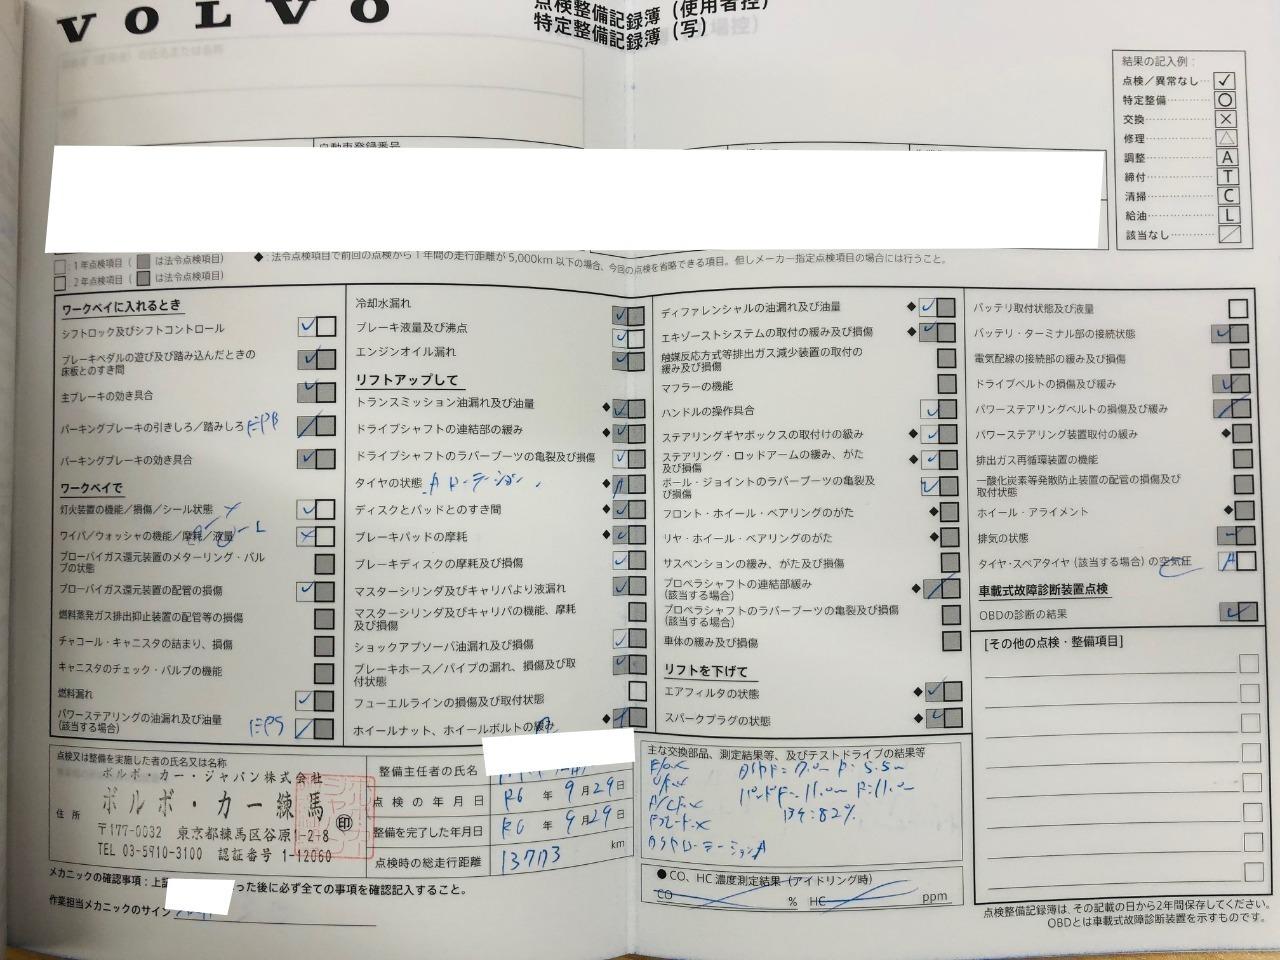 VOLVO
点検整備記録簿（使用者控）
特定整備記録簿（写）
結果の記入例：
点検／異常なし ✓
特定整備 ○
交換 ×
修理 △
調整 A
締付 T
清掃 C
給油 L
該当なし ／
自動車登録番号
：1年点検項目（ は法令点検項目）
：2年点検項目（ は法令点検項目）
◆：法令点検項目で前回の点検から1年間の走行距離が5,000km以下の場合、今回の点検を省略できる項目。但しメーカー指定点検項目の場合には行うこと。
ワークベイに入れるとき
シフトロック及びシフトコントロール
ブレーキペダルの遊び及び踏み込んだときの
床板とのすき間
主ブレーキの効き具合
パーキングブレーキの引きしろ／踏みしろ EPB
パーキングブレーキの効き具合
ワークベイで
灯火装置の機能／損傷／シール状態
ワイパ／ウォッシャの機能／摩耗／液量
ブローバイガス還元装置のメターリング・バル
ブの状態
ブローバイガス還元装置の配管の損傷
燃料蒸発ガス排出抑止装置の配管等の損傷
チャコール・キャニスタの詰まり、損傷
キャニスタのチェック・バルブの機能
燃料漏れ
パワーステアリングの油漏れ及び油量
（該当する場合） EPS
冷却水漏れ
ブレーキ液量及び沸点
エンジンオイル漏れ
リフトアップして
トランスミッション油漏れ及び油量 ◆
ドライブシャフトの連結部の緩み ◆
ドライブシャフトのラバーブーツの亀裂及び損傷
タイヤの状態 ローテーション ◆
ディスクとパッドとのすき間 ◆
ブレーキパッドの摩耗 ◆
ブレーキディスクの摩耗及び損傷
マスターシリンダ及びキャリパより液漏れ
マスターシリンダ及びキャリパの機能、摩耗
及び損傷
ショックアブソーバ油漏れ及び損傷
ブレーキホース／パイプの漏れ、損傷及び取
付状態
フューエルラインの損傷及び取付状態
ホイールナット、ホイールボルトの緩み ◆
ディファレンシャルの油漏れ及び油量 ◆
エキゾーストシステムの取付の緩み及び損傷 ◆
触媒反応方式等排出ガス減少装置の取付の
緩み及び損傷
マフラーの機能
ハンドルの操作具合
ステアリングギヤボックスの取付けの緩み ◆
ステアリング・ロッドアームの緩み、がた
及び損傷 ◆
ボール・ジョイントのラバーブーツの亀裂及
び損傷
フロント・ホイール・ベアリングのがた ◆
リヤ・ホイール・ベアリングのがた ◆
サスペンションの緩み、がた及び損傷
プロペラシャフトの連結部緩み
（該当する場合） ◆
プロペラシャフトのラバーブーツの亀裂及び損傷
（該当する場合）
車体の緩み及び損傷
リフトを下げて
エアフィルタの状態 ◆
スパークプラグの状態 ◆
バッテリ取付状態及び液量
バッテリ・ターミナル部の接続状態
電気配線の接続部の緩み及び損傷
ドライブベルトの損傷及び緩み
パワーステアリングベルトの損傷及び緩み
パワーステアリング装置取付の緩み ◆
排出ガス再循環装置の機能
一酸化炭素等発散防止装置の配管の損傷及び
取付状態
ホイール・アライメント ◆
排気の状態
タイヤ・スペアタイヤ（該当する場合）の空気圧 A
車載式故障診断装置点検
OBDの診断の結果
［その他の点検・整備項目］
点検又は整備を実施した者の氏名又は名称
ボルボ・カー・ジャパン株式会社
ボルボ・カー練馬
住所 〒177-0032 東京都練馬区谷原1-2-8
TEL 03-5910-3100 認証番号 1-12060
印
整備主任者の氏名
点検の年月日 R6 年 9月29日
整備を完了した年月日 R6 年 9月29日
点検時の総走行距離 13773 km
主な交換部品、測定結果等、及びテストドライブの結果等
E/O.X タイヤF=7.0m R=5.5m
パッドF=11.0m R=11.0m
A/C F.X 134:82%
タイヤローテーションA
●CO、HC濃度測定結果（アイドリング時）
CO % HC ppm
メカニックの確認事項：上記 った後に必ず全ての事項を確認記入すること。
作業担当メカニックのサイン
点検整備記録簿は、その記載の日から2年間保存してください。
OBDとは車載式故障診断装置を示すものです。